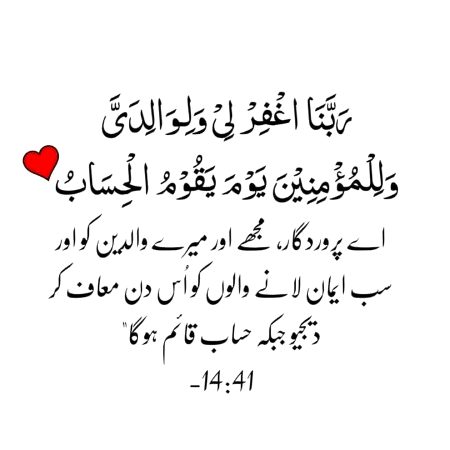 رَبَّنَا اغْفِرْ لِيْ وَلِوَالِدَيَّ
وَلِلْمُؤْمِنِيْنَ يَوْمَ يَقُوْمُ الْحِسَابُ
اے پروردگار، مجھے اور میرے والدین کو اور
سب ایمان لانے والوں کو اُس دن معاف کر
دیجیو جبکہ حساب قائم ہوگا"
14:41-